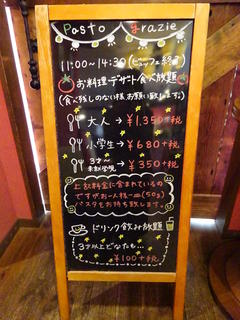 Pasto Grazie
11:00~14:30(ビュッフェ終了)
お料理デザート食べ放題
(食べ残しのない様、お願い致します。)
大人→¥1,350+税
小学生→¥680+税
3才~未就学児→¥350+税
上記料金に含まれているの
ですがお一人様一皿(50g)
パスタをお持ち致します。
ドリンク飲み放題
3才以上どなたも…
¥100+税